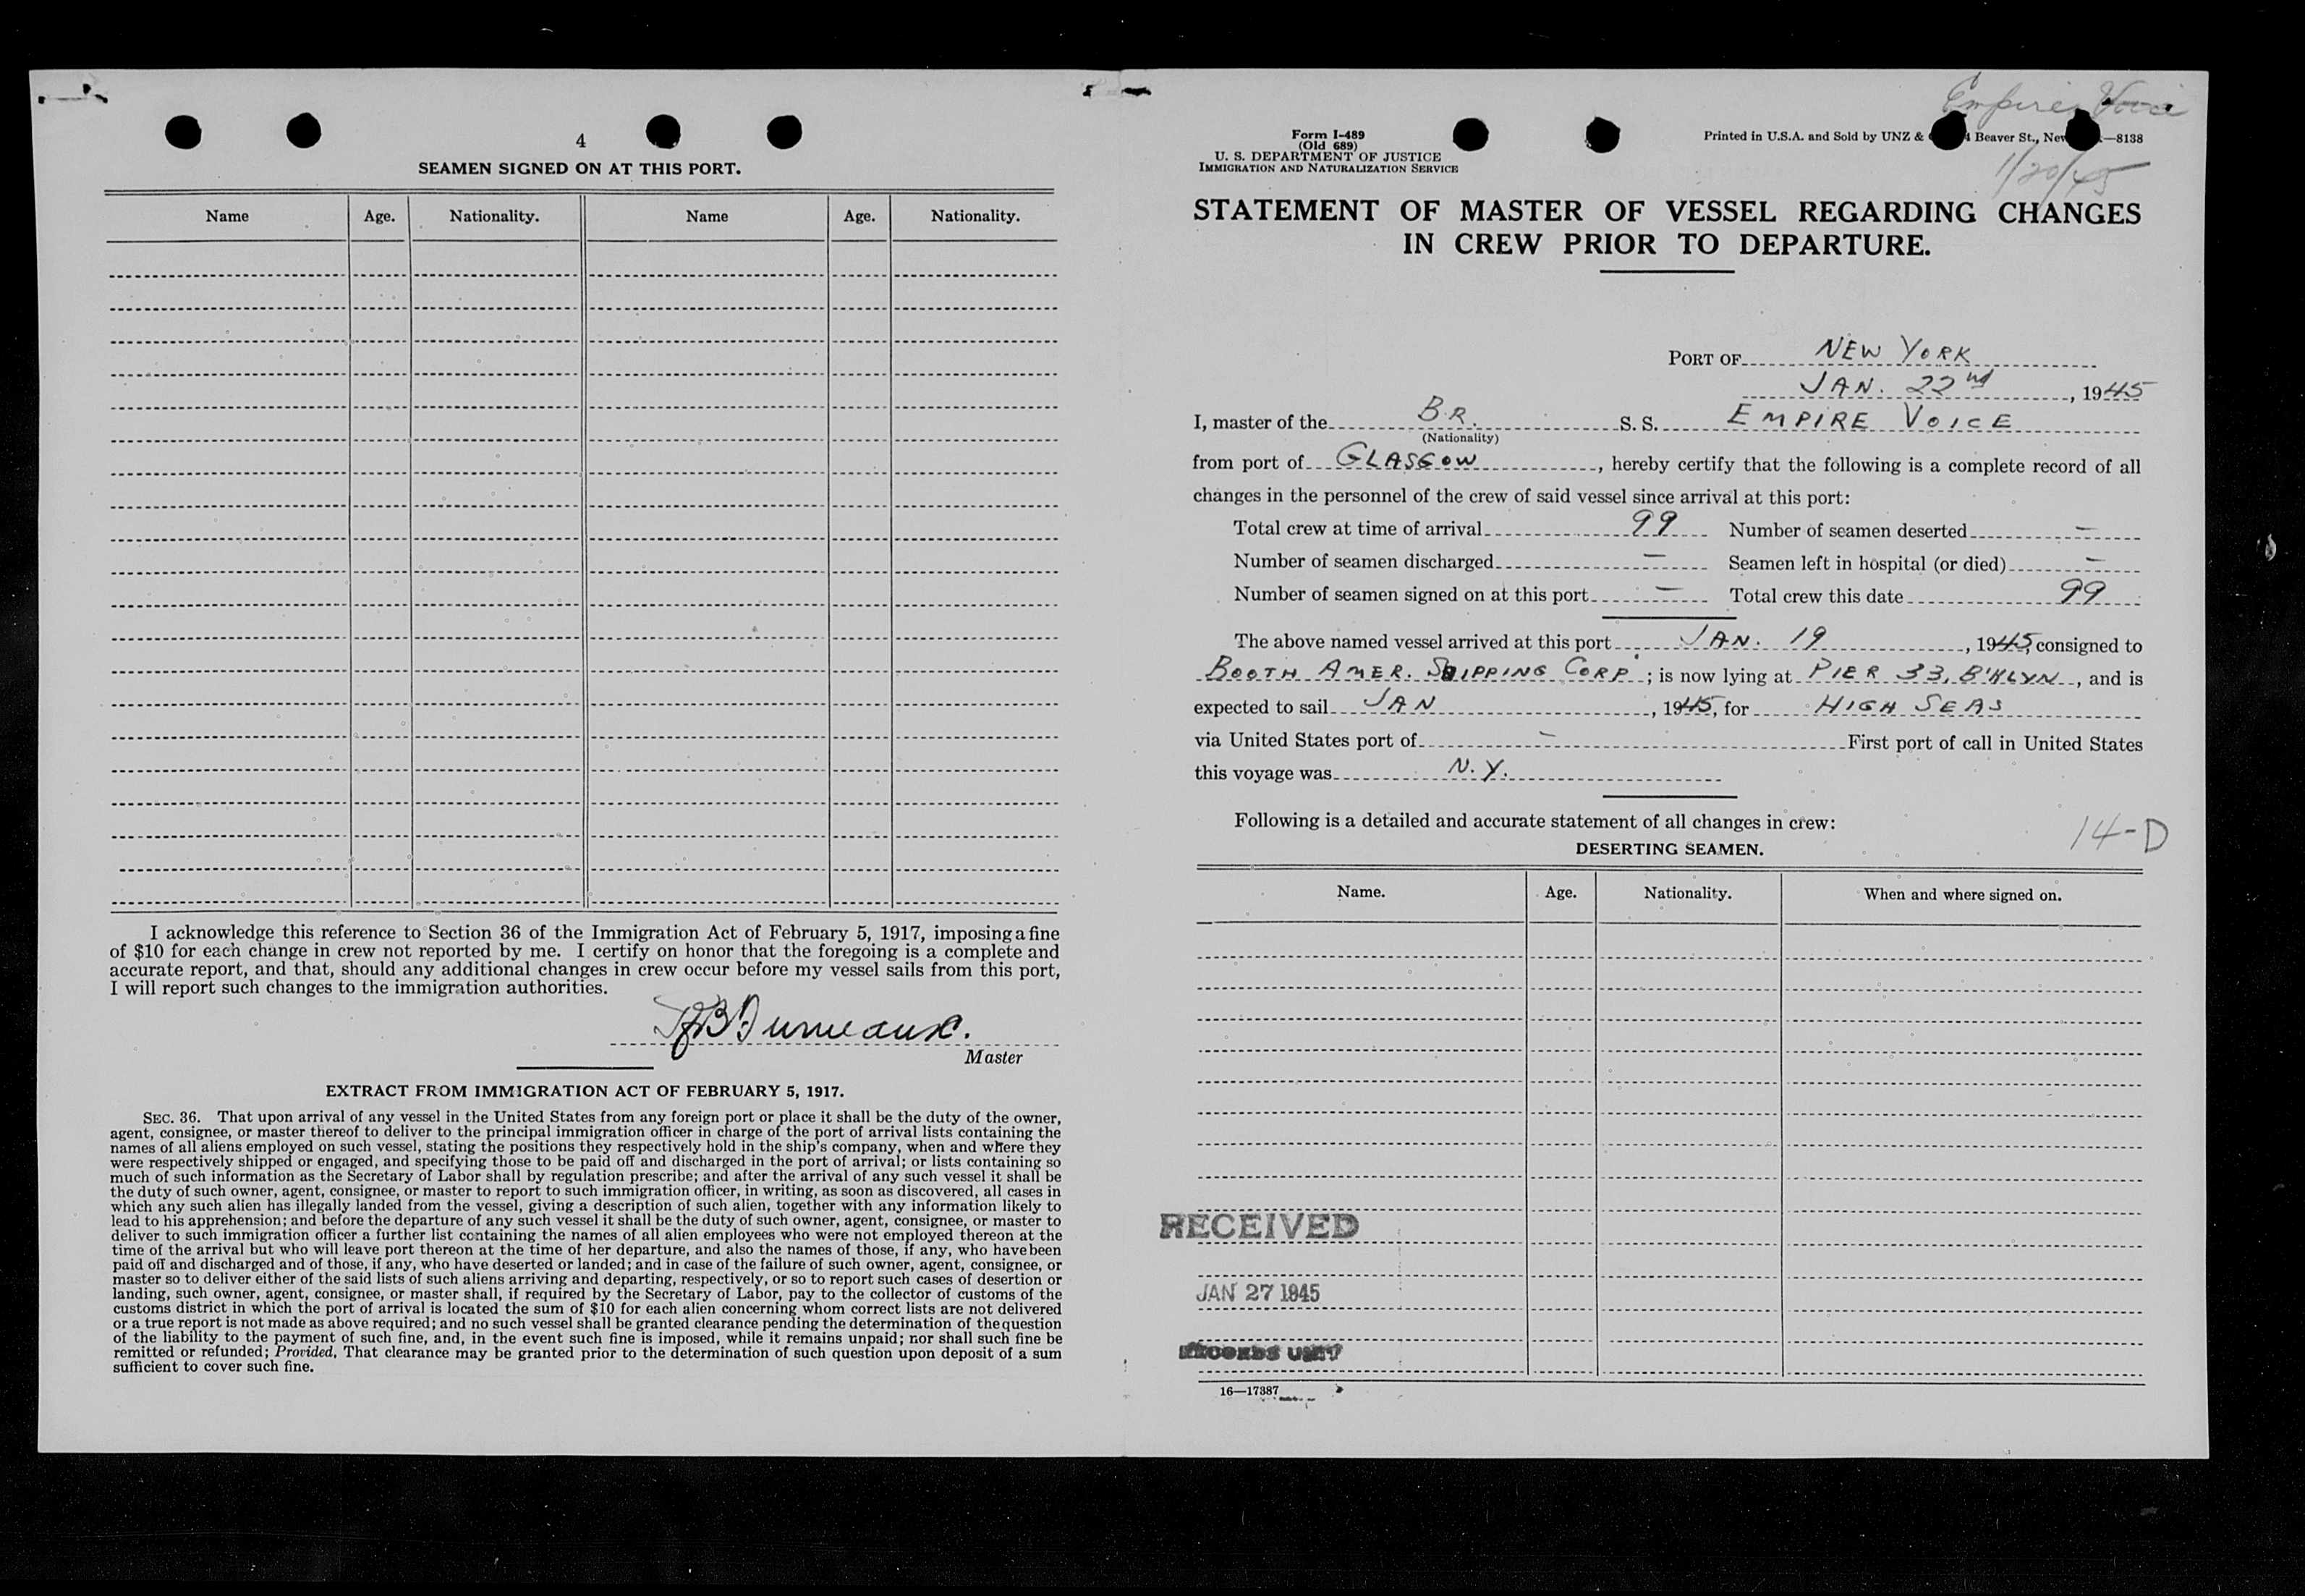 4
SEAMEN SIGNED ON AT THIS PORT.
Name Age. Nationality. Name Age. Nationality.
I acknowledge this reference to Section 36 of the Immigration Act of February 5, 1917, imposing a fine
of $10 for each change in crew not reported by me. I certify on honor that the foregoing is a complete and
accurate report, and that, should any additional changes in crew occur before my vessel sails from this port,
I will report such changes to the immigration authorities.
Master
EXTRACT FROM IMMIGRATION ACT OF FEBRUARY 5, 1917.
SEC. 36. That upon arrival of any vessel in the United States from any foreign port or place it shall be the duty of the owner,
agent, consignee, or master thereof to deliver to the principal immigration officer in charge of the port of arrival lists containing the
names of all aliens employed on such vessel, stating the positions they respectively hold in the ship's company, when and where they
were respectively shipped or engaged, and specifying those to be paid off and discharged in the port of arrival; or lists containing so
much of such information as the Secretary of Labor shall by regulation prescribe; and after the arrival of any such vessel it shall be
the duty of such owner, agent, consignee, or master to report to such immigration officer, in writing, as soon as discovered, all cases in
which any such alien has illegally landed from the vessel, giving a description of such alien, together with any information likely to
lead to his apprehension; and before the departure of any such vessel it shall be the duty of such owner, agent, consignee, or master to
deliver to such immigration officer a further list containing the names of all alien employees who were not employed thereon at the
time of the arrival but who will leave port thereon at the time of her departure, and also the names of those, if any, who have been
paid off and discharged and of those, if any, who have deserted or landed; and in case of the failure of such owner, agent, consignee, or
master so to deliver either of the said lists of such aliens arriving and departing, respectively, or so to report such cases of desertion or
landing, such owner, agent, consignee, or master shall, if required by the Secretary of Labor, pay to the collector of customs of the
customs district in which the port of arrival is located the sum of $10 for each alien concerning whom correct lists are not delivered
or a true report is not made as above required; and no such vessel shall be granted clearance pending the determination of the question
of the liability to the payment of such fine, and, in the event such fine is imposed, while it remains unpaid; nor shall such fine be
remitted or refunded; Provided, That clearance may be granted prior to the determination of such question upon deposit of a sum
sufficient to cover such fine.
Empire Voice
Form I-489
(Old 689)
U. S. DEPARTMENT OF JUSTICE
IMMIGRATION AND NATURALIZATION SERVICE
Printed in U.S.A. and Sold by UNZ & Beaver St., New —8138
1/20/45
STATEMENT OF MASTER OF VESSEL REGARDING CHANGES
IN CREW PRIOR TO DEPARTURE.
PORT OF NEW YORK
JAN. 22nd, 1945
I, master of the BR. S. S. EMPIRE VOICE
(Nationality)
from port of GLASGOW, hereby certify that the following is a complete record of all
changes in the personnel of the crew of said vessel since arrival at this port:
Total crew at time of arrival 99 Number of seamen deserted —
Number of seamen discharged — Seamen left in hospital (or died) —
Number of seamen signed on at this port — Total crew this date 99
The above named vessel arrived at this port JAN. 19, 1945, consigned to
BOOTH AMER. SHIPPING CORP.; is now lying at PIER 33, B'KLYN, and is
expected to sail JAN, 1945, for HIGH SEAS
via United States port of — First port of call in United States
this voyage was N.Y.
Following is a detailed and accurate statement of all changes in crew:
14-D
DESERTING SEAMEN.
Name. Age. Nationality. When and where signed on.
RECEIVED
JAN 27 1945
RECORDS UNIT
16—17387